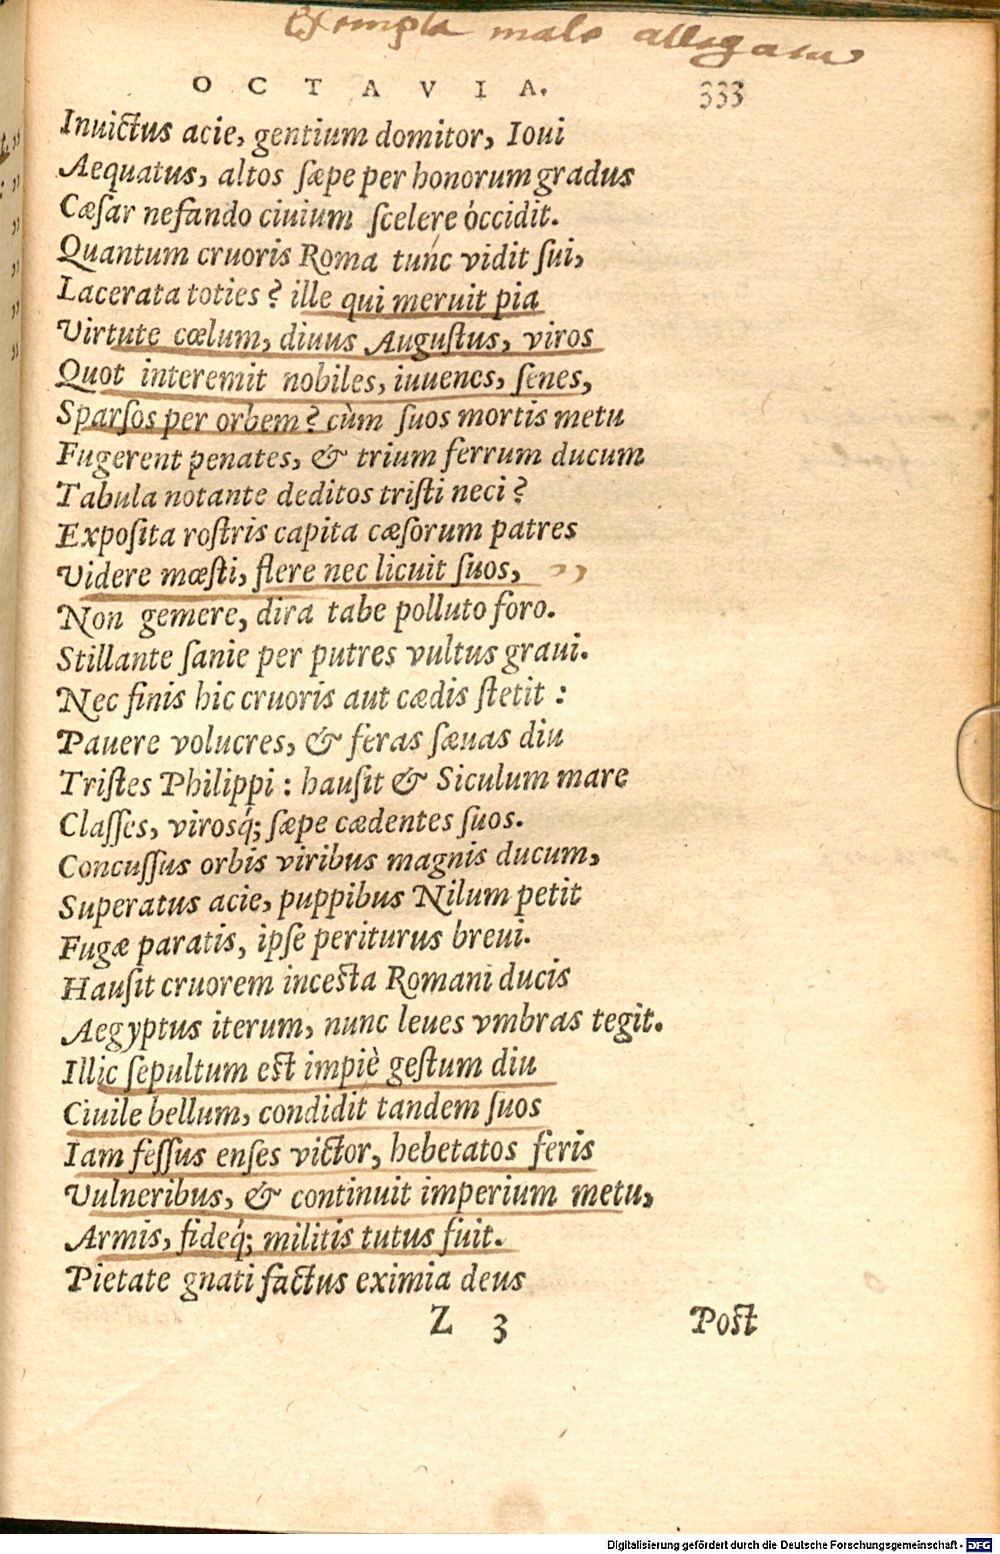 Exempla male allegata
OCTAVIA. 333
Inuictus acie, gentium domitor, Ioui
Aequatus, altos sæpe per honorum gradus
Cæsar nefando ciuium scelere óccidit.
Quantum cruoris Roma tunc vidit sui,
Lacerata toties? ille qui meruit pia
Virtute cœlum, diuus Augustus, viros
Quot interemit nobiles, iuuenes, senes,
Sparsos per orbem? cùm suos mortis metu
Fugerent penates, & trium ferrum ducum
Tabula notante deditos tristi neci?
Exposita rostris capita cæsorum patres
Videre mœsti, flere nec licuit suos, ,,
Non gemere, dira tabe polluto foro.
Stillante sanie per putres vultus graui.
Nec finis hic cruoris aut cædis stetit:
Pauere volucres, & feras sæuas diu
Tristes Philippi: hausit & Siculum mare
Classes, virosq́; sæpe cædentes suos.
Concussus orbis viribus magnis ducum,
Superatus acie, puppibus Nilum petit
Fugæ paratis, ipse periturus breui.
Hausit cruorem incesta Romani ducis
Aegyptus iterum, nunc leues vmbras tegit.
Illic sepultum est impiè gestum diu
Ciuile bellum, condidit tandem suos
Iam fessus enses victor, hebetatos feris
Vulneribus, & continuit imperium metu,
Armis, fideq́; militis tutus fuit.
Pietate gnati factus eximia deus
Z 3 Post
Digitalisierung gefördert durch die Deutsche Forschungsgemeinschaft - DFG